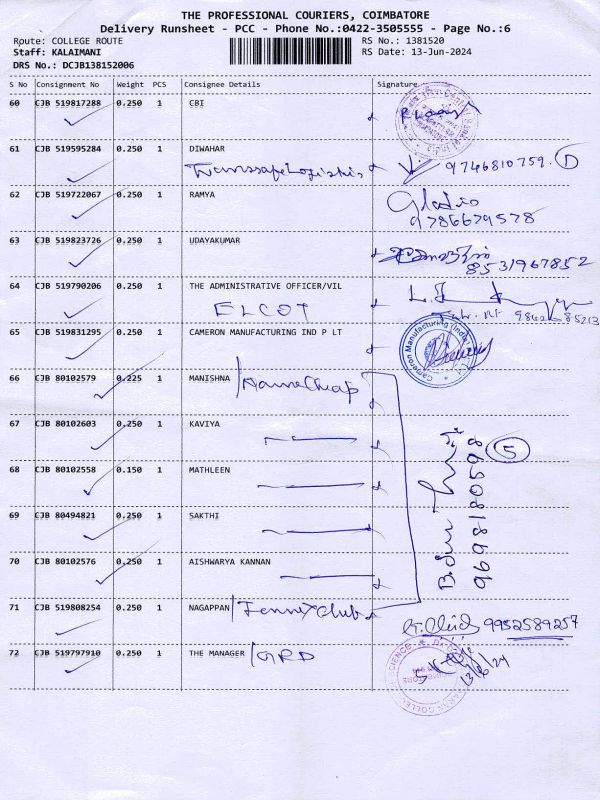 THE PROFESSIONAL COURIERS, COIMBATORE
Delivery Runsheet - PCC - Phone No.:0422-3505555 - Page No.:6
Route: COLLEGE ROUTE RS No.: 1381520
Staff: KALAIMANI RS Date: 13-Jun-2024
DRS No.: DCJB138152006
S No Consignment No Weight PCS Consignee Details Signature
60 CJB 519817288 0.250 1 CBI
61 CJB 519595284 0.250 1 DIWAHAR
Transsafe Logistics 9746810759. 1
62 CJB 519722067 0.250 1 RAMYA
9786679578
63 CJB 519823726 0.250 1 UDAYAKUMAR
8531967852
64 CJB 519790206 0.250 1 THE ADMINISTRATIVE OFFICER/VIL
ELCOT
65 CJB 519831295 0.250 1 CAMERON MANUFACTURING IND P LT
Cameron Manufacturing (India)
66 CJB 80102579 0.225 1 MANISHNA / NameCheap
67 CJB 80102603 0.250 1 KAVIYA
5
68 CJB 80102558 0.150 1 MATHLEEN
9698180598
69 CJB 80494821 0.250 1 SAKTHI
70 CJB 80102576 0.250 1 AISHWARYA KANNAN
71 CJB 519808254 0.250 1 NAGAPPAN /
9952589257
72 CJB 519797910 0.250 1 THE MANAGER / GRD
13/6/24